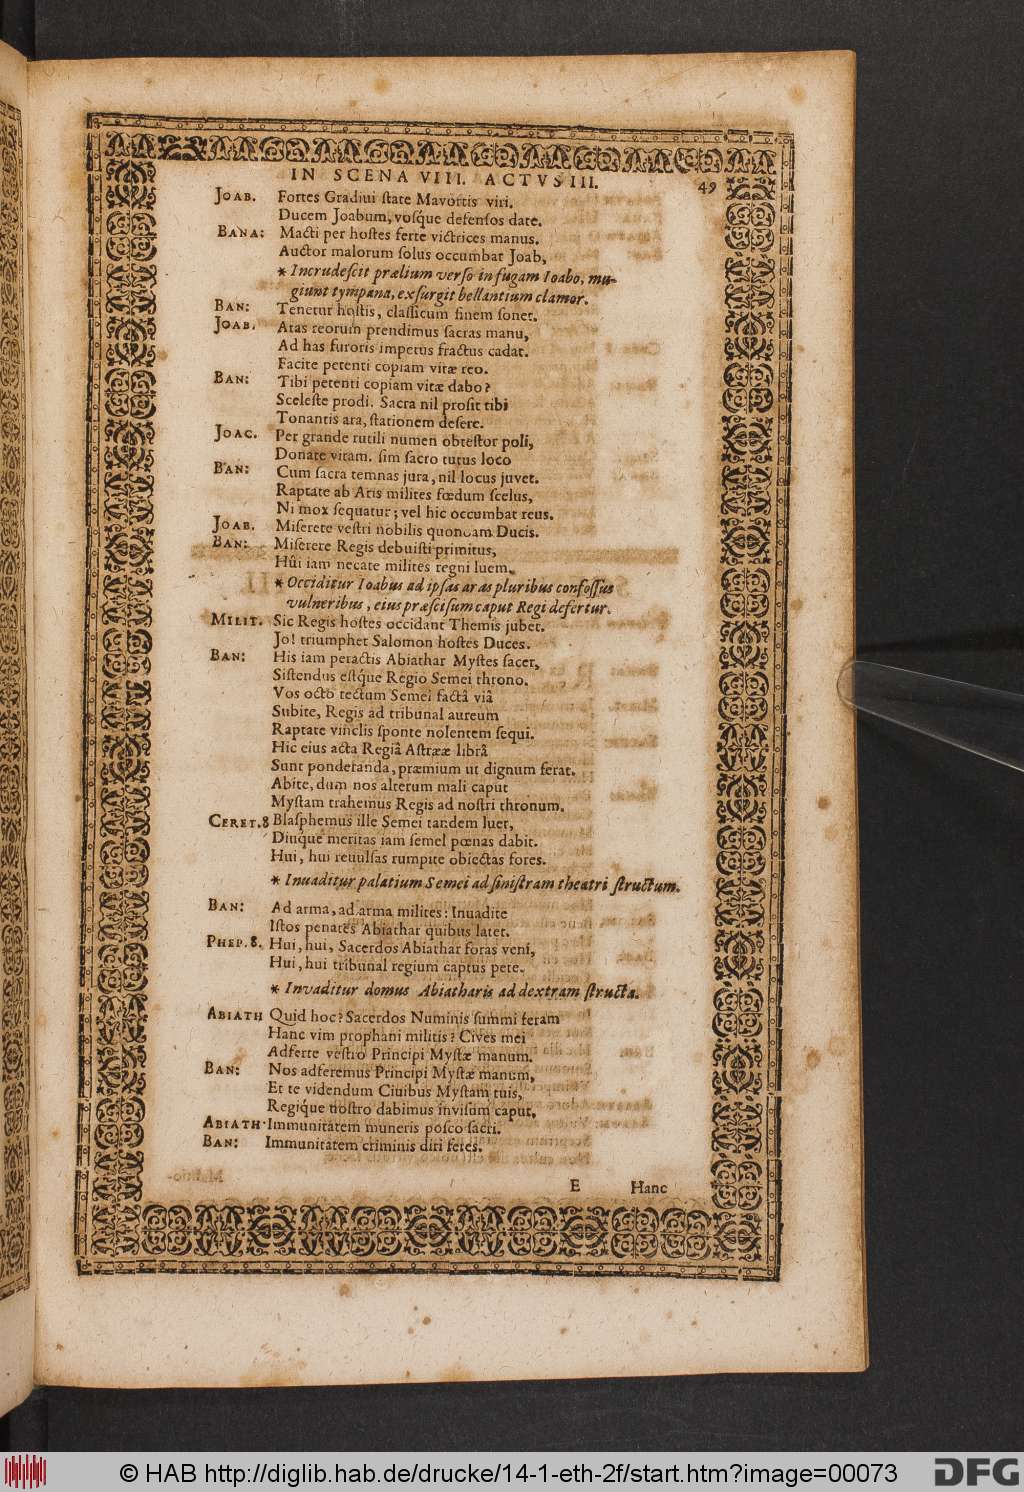 IN SCENA VIII. ACTVS III.
49
JOAB. Fortes Gradiui state Mavortis viri.
Ducem Joabum, vosque defensos date.
BANA: Macti per hostes ferte victrices manus.
Auctor malorum solus occumbat Joab,
* Incrudescit prælium verso in fugam Ioabo, mu-
giunt tympana, exsurgit bellantium clamor.
BAN: Tenetur hostis, classicum finem sonet.
JOAB. Aras reorum prendimus sacras manu,
Ad has furoris impetus fractus cadat.
Facite petenti copiam vitæ reo.
BAN: Tibi petenti copiam vitæ dabo?
Sceleste prodi. Sacra nil prosit tibi
Tonantis ara, stationem desere.
JOAC. Per grande rutili numen obtestor poli,
Donate vitam. sim sacro tutus loco
BAN: Cum sacra temnas jura, nil locus juvet.
Raptate ab Aris milites fœdum scelus,
Ni mox sequatur; vel hic occumbat reus.
JOAB. Miserete vestri nobilis quondam Ducis.
BAN: Miserere Regis debuisti primitus,
Hui iam necate milites regni luem.
* Occiditur Ioabus ad ipsas aras pluribus confossus
vulneribus, eius præscisum caput Regi defertur.
MILIT. Sic Regis hostes occidant Themis jubet.
Jo! triumphet Salomon hostes Duces.
BAN: His iam peractis Abiathar Mystes sacer,
Sistendus estque Regio Semei throno.
Vos octo tectum Semei factâ viâ
Subite, Regis ad tribunal aureum
Raptate vinclis sponte nolentem sequi.
Hic eius acta Regiâ Astrææ librâ
Sunt ponderanda, præmium ut dignum ferat.
Abite, dum nos alterum mali caput
Mystam trahemus Regis ad nostri thronum.
CERET.8 Blasphemus ille Semei tandem luet,
Diuque meritas iam semel pœnas dabit.
Hui, hui reuulsas rumpite obiectas fores.
* Inuaditur palatium Semei ad sinistram theatri structum.
BAN: Ad arma, ad arma milites: Inuadite
Istos penates Abiathar quibus latet.
PHEP.8. Hui, hui, Sacerdos Abiathar foras veni,
Hui, hui tribunal regium captus pete.
* Invaditur domus Abiatharis ad dextram structa.
ABIATH Quid hoc? Sacerdos Numinis summi feram
Hanc vim prophani militis? Cives mei
Adferte vestro Principi Mystæ manum.
BAN: Nos adferemus Principi Mystæ manum,
Et te videndum Ciuibus Mystam tuis,
Regique nostro dabimus invisum caput.
ABIATH. Immunitatem muneris posco sacri.
BAN: Immunitatem criminis diri feres.
E Hanc
© HAB http://diglib.hab.de/drucke/14-1-eth-2f/start.htm?image=00073
DFG